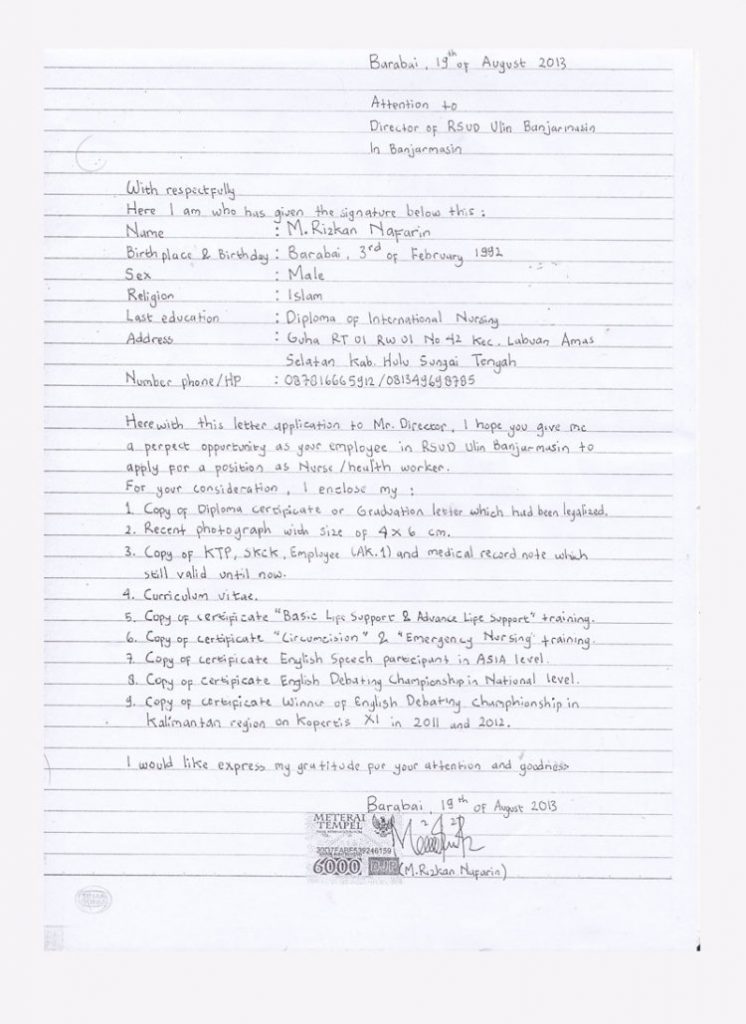 Barabai, 19th of August 2013
Attention to
Director of RSUD Ulin Banjarmasin
In Banjarmasin
With respectfully
Here I am who has given the signature below this :
Name : M. Rizkan Nafarin
Birthplace & Birthday : Barabai, 3rd of February 1992
Sex : Male
Religion : Islam
Last education : Diploma of International Nursing
Address : Guha RT 01 RW 01 No 42 Kec. Labuan Amas
Selatan Kab. Hulu Sungai Tengah
Number phone/HP : 087816665912 / 081349698785
Herewith this letter application to Mr. Director, I hope you give me
a perpect opportunity as your employee in RSUD Ulin Banjarmasin to
apply for a position as Nurse / health worker.
For your consideration, I enclose my :
1. Copy of Diploma certificate or Graduation letter which had been legalized.
2. Recent photograph with size of 4 x 6 cm.
3. Copy of KTP, SKCK, Employee (AK.1) and medical record note which
still valid until now.
4. Curriculum vitae.
5. Copy of certificate "Basic Life Support & Advance Life Support" training.
6. Copy of certificate "Circumcision" & "Emergency Nursing" training.
7. Copy of certificate English Speech participant in ASIA level.
8. Copy of certificate English Debating Championship in National level.
9. Copy of certificate Winner of English Debating Champhionship in
Kalimantan region on Kopertis XI in 2011 and 2012.
I would like express my gratitude for your attention and goodness
Barabai, 19th of August 2013
METERAI
TEMPEL
6000 DJP
(M. Rizkan Nafarin)